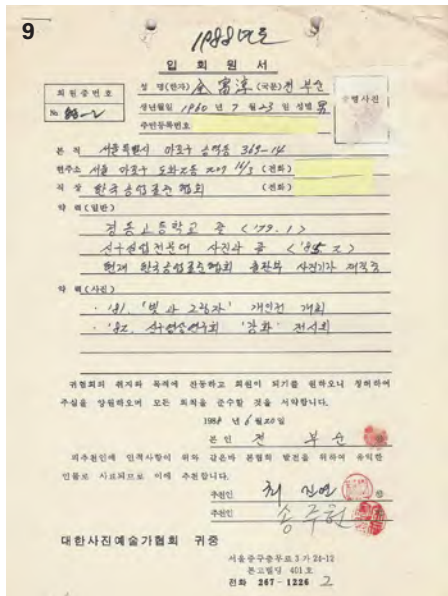 9
1988년도
입 회 원 서
회 원 증 번 호
№ 88-2
성 명(한자) 全富淳 (국문) 전부순
생년월일 1960 년 7 월 23 일 성별 男
주민등록번호
증명사진
본 적 서울특별시 마포구 369-14
현주소 서울 마포구 도화2동 (전화)
직 장 한국공업표준협회 (전화)
약 력(일반)
경동고등학교 졸 ('79. 1)
신구실업전문대 사진과 졸 ('85. 2)
현재 한국공업표준협회 출판부 사진기자 재직중
약 력(사진)
· '81. '빛과 그림자' 개인전 개최
· '82. 신구영상연구회 '강화' 전시회
귀협회의 취지와 목적에 찬동하고 회원이 되기를 원하오니 청허하여
주심을 앙원하오며 모든 회칙을 준수할 것을 서약합니다.
1988 년 6 월 20 일
본 인 전 부 순
피추천인에 인적사항이 위와 같은바 본협회 발전을 위하여 유익한
인물로 사료되므로 이에 추천합니다.
추천인 최 진연
추천인 송주헌
대한사진예술가협회 귀중
서울중구충무로 3 가 24-12
본고빌딩 401 호
전화 267-1226 2